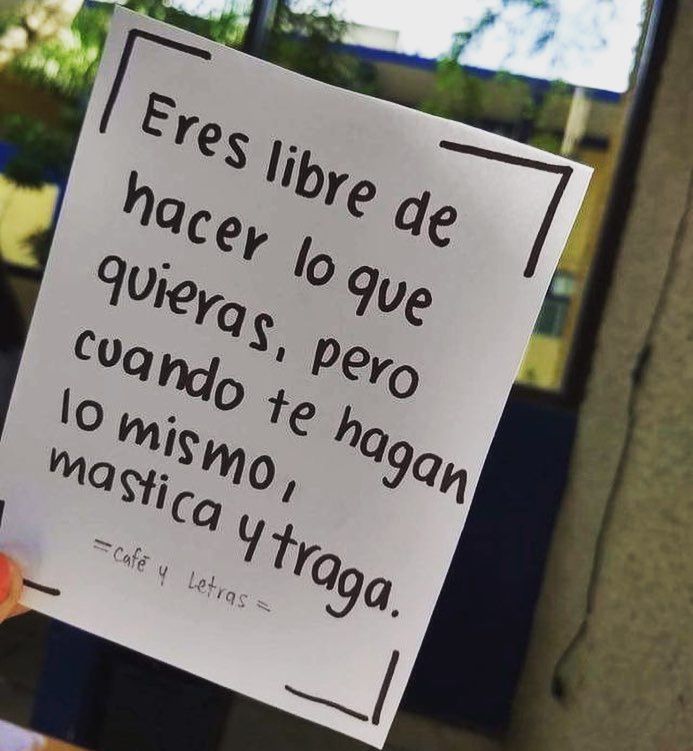 Eres libre de
hacer lo que
quieras, pero
cuando te hagan
lo mismo,
mastica y traga.
=Café y Letras=